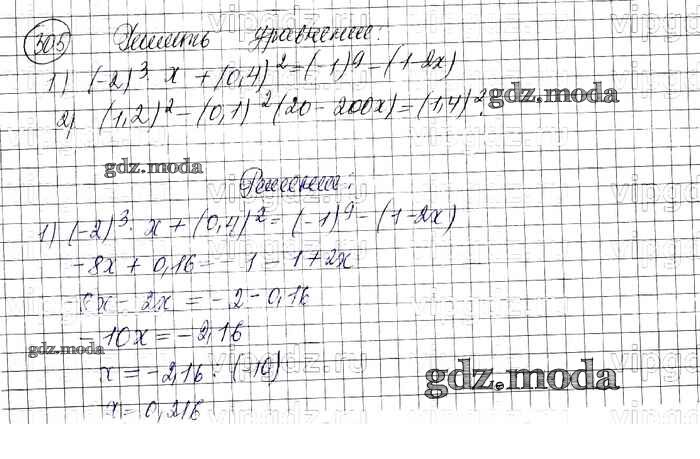 305 Решить уравнение:
1) (-2)³ · x + (0,4)² = (-1)⁹ - (1-2x)
2) (1,2)² - (0,1)² (20 - 200x) = (1,4)².
gdz.moda
gdz.moda
Решение:
1) (-2)³ · x + (0,4)² = (-1)⁹ - (1-2x)
-8x + 0,16 = -1 - 1 + 2x
x - 2x = -2 - 0,16
-10x = -2,16
gdz.moda
x = -2,16 : (-10)
gdz.moda
x = 0,216